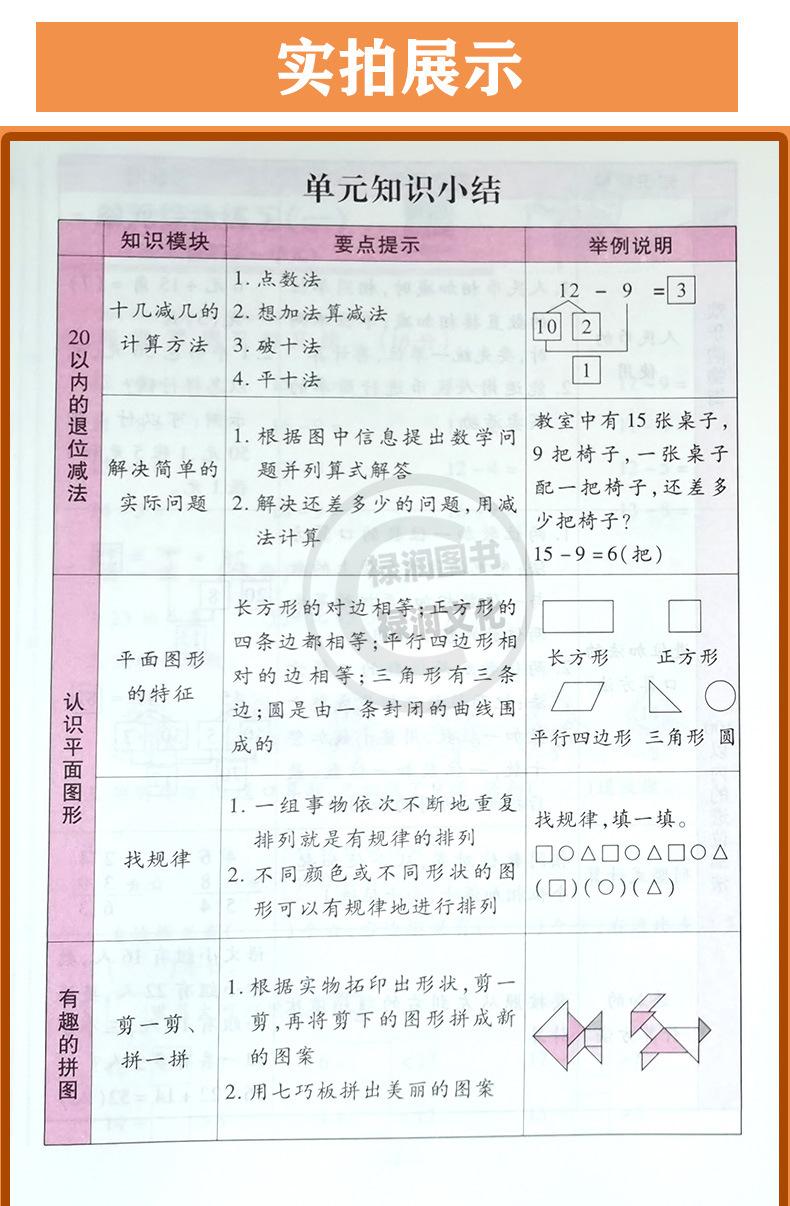 实拍展示
单元知识小结
知识模块
要点提示
举例说明
20以内的退位减法
十几减几的
计算方法
1. 点数法
2. 想加法算减法
3. 破十法
4. 平十法
12 - 9 = 3
10 2
1
解决简单的
实际问题
1. 根据图中信息提出数学问
题并列算式解答
2. 解决还差多少的问题,用减
法计算
教室中有15张桌子,
9把椅子,一张桌子
配一把椅子,还差多
少把椅子?
15-9=6(把)
认识平面图形
平面图形
的特征
长方形的对边相等;正方形的
四条边都相等;平行四边形相
对的边相等;三角形有三条
边;圆是由一条封闭的曲线围
成的
长方形 正方形
平行四边形 三角形 圆
找规律
1. 一组事物依次不断地重复
排列就是有规律的排列
2. 不同颜色或不同形状的图
形可以有规律地进行排列
找规律,填一填。
□○△□○△□○△
(□)(○)(△)
有趣的拼图
剪一剪、
拼一拼
1. 根据实物拓印出形状,剪一
剪,再将剪下的图形拼成新
的图案
2. 用七巧板拼出美丽的图案
禄润图书
禄润文化